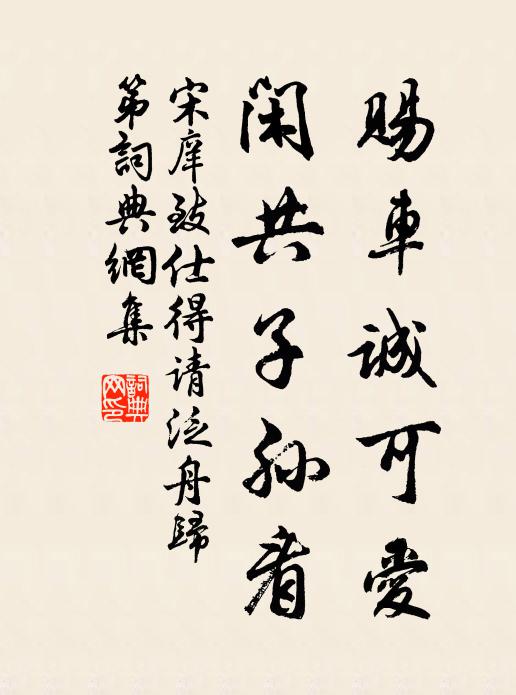 賜車誠可愛
閑共子孫看
宋庠致仕得请泛舟歸
第詞典網集
詞典網印